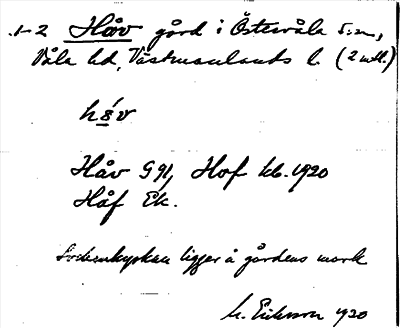 1-2 Håv gård i Östervåla s:n,
Våla hd, Västmanlands l. (2 mtl.)
håv
Håv G 91, Hof kb. 1920
Håf Ek.
Sockenkyrkan ligger å gårdens mark
M. Eriksson 1920